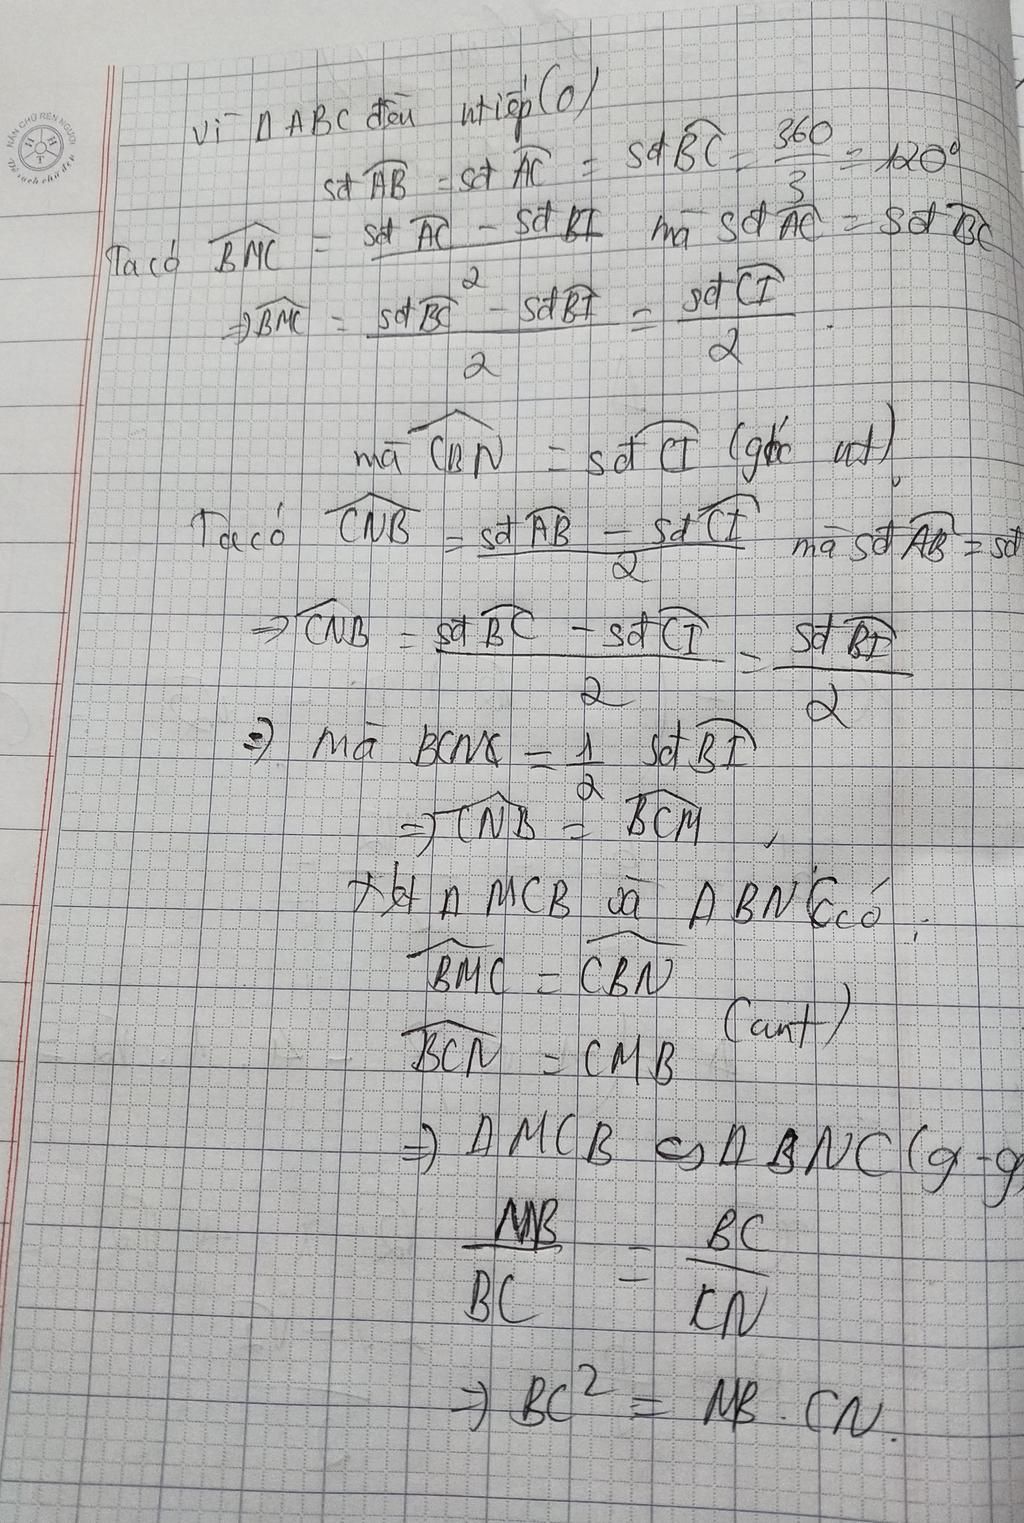 HÀN CHỮ RÈN NGƯỜI
H H T
Vì Δ ABC đều ntiếp (O)
sđ AB = sđ AC = sđ BC = 360/3 = 120°
Ta có BMC = (sđ AC - sđ BI)/2 mà sđ AC = sđ BC
⇒ BMC = (sđ BC - sđ BI)/2 = sđ CI/2
mà CBN = sđ CI (góc nt)
Ta có CNB = (sđ AB - sđ CI)/2 mà sđ AB = sđ
⇒ CNB = (sđ BC - sđ CI)/2 = sđ BI/2
⇒ mà = 1/2 sđ BI
⇒ CNB = BCM
+ Xét Δ MCB và Δ BNC có:
BMC = CBN
(cmt)
BCN = CMB
⇒ Δ MCB ∽ Δ BNC (g-g
MB/BC = BC/CN
⇒ BC² = MB . CN.